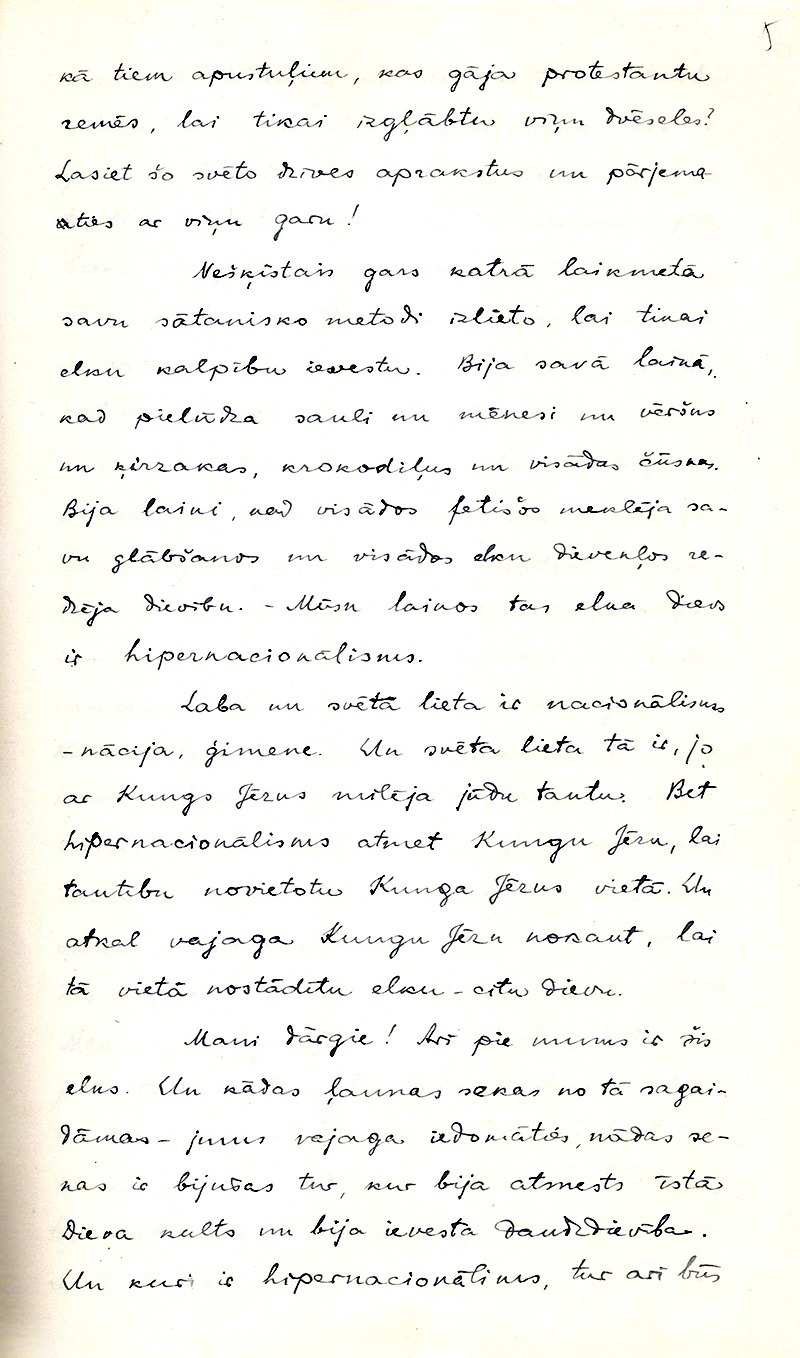 5
kā tiem apustuļiem, kas gāja protestantu
zemēs, lai tikai izglābtu viņu dvēseles?
Lasiet šo svēto dzīves aprakstus un pārjema-
aties ar viņu garu!
Nešķīstais gars katrā laikmetā
savu sātanisko metodi izlieto, lai tikai
elku kalpību ievestu. Bija savā laikā,
kad pielūdza sauli un mēnesi un vēršus
un ķirzakas, krokodiļus un visādas čūskas.
Bija laiki, kad visādos fetišos meklēja sa-
vu glābšanos un visādos elku dievekļos re-
dzēja dievību. - Mūsu laikos tas elka dievs
ir hipernacionālisms.
Laba un svētā lieta ir nacionālisms
- nācija, ģimene. Un svēta lieta tā ir, jo
ar Kungs Jēzus mīlēja jūdu tautu. Bet
hipernacionālisms atmet Kungu Jēzu, lai
tautību novietotu Kunga Jēzus vietā. Un
atkal vajaga Kungu Jēzu nokaut, lai
tā vietā nostādītu elku - citu dievu.
Mani dārgie! Arī pie mums ir šis
elks. Un kādas ļaunas sekas no tā sagai-
dāmas - jums vajaga iedomāties, kādas se-
kas ir bijušas tur, kur bija atmests īstā
Dieva kults un bija ievesta daudzdievība.
Un kur ir hipernacionālims, tur arī būs